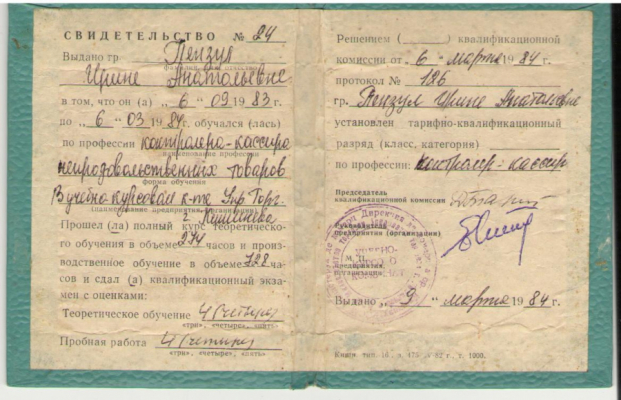 СВИДЕТЕЛЬСТВО № 24
Выдано гр Пензул
Ирине Анатольевне
в том, что он (а) „6“ 09 1983 г.
по „6“ 03 1984г. обучался (лась)
по профессии контролера-кассира
наименование профессии
непродовольственных товаров
форма обучения
В учебно курсовом к-те Упр Торг.
(наименование предприятия, организации)
г. Кишинева
Прошел (ла) полный курс теоретическо-
го обучения в объеме 274 часов и произ-
водственное обучение в объеме 728 ча-
сов и сдал (а) квалификационный экза-
мен с оценками:
Теоретическое обучение 4 (четыре)
«три», «четыре», «пять»
Пробная работа 4 (четыре)
«три», «четыре», «пять»
Решением ( ) квалификационной
комиссии от „6“ марта 1984 г.
протокол № 186
гр. Пензул Ирине Анатольевне
установлен тарифно-квалификационный
разряд (класс, категория)
по профессии: контролер-кассир
Председатель
квалификационной комиссии
Руководитель
предприятия (организации)
М. П.
предприятия,
организации
Выдано „9“ марта 1984 г.